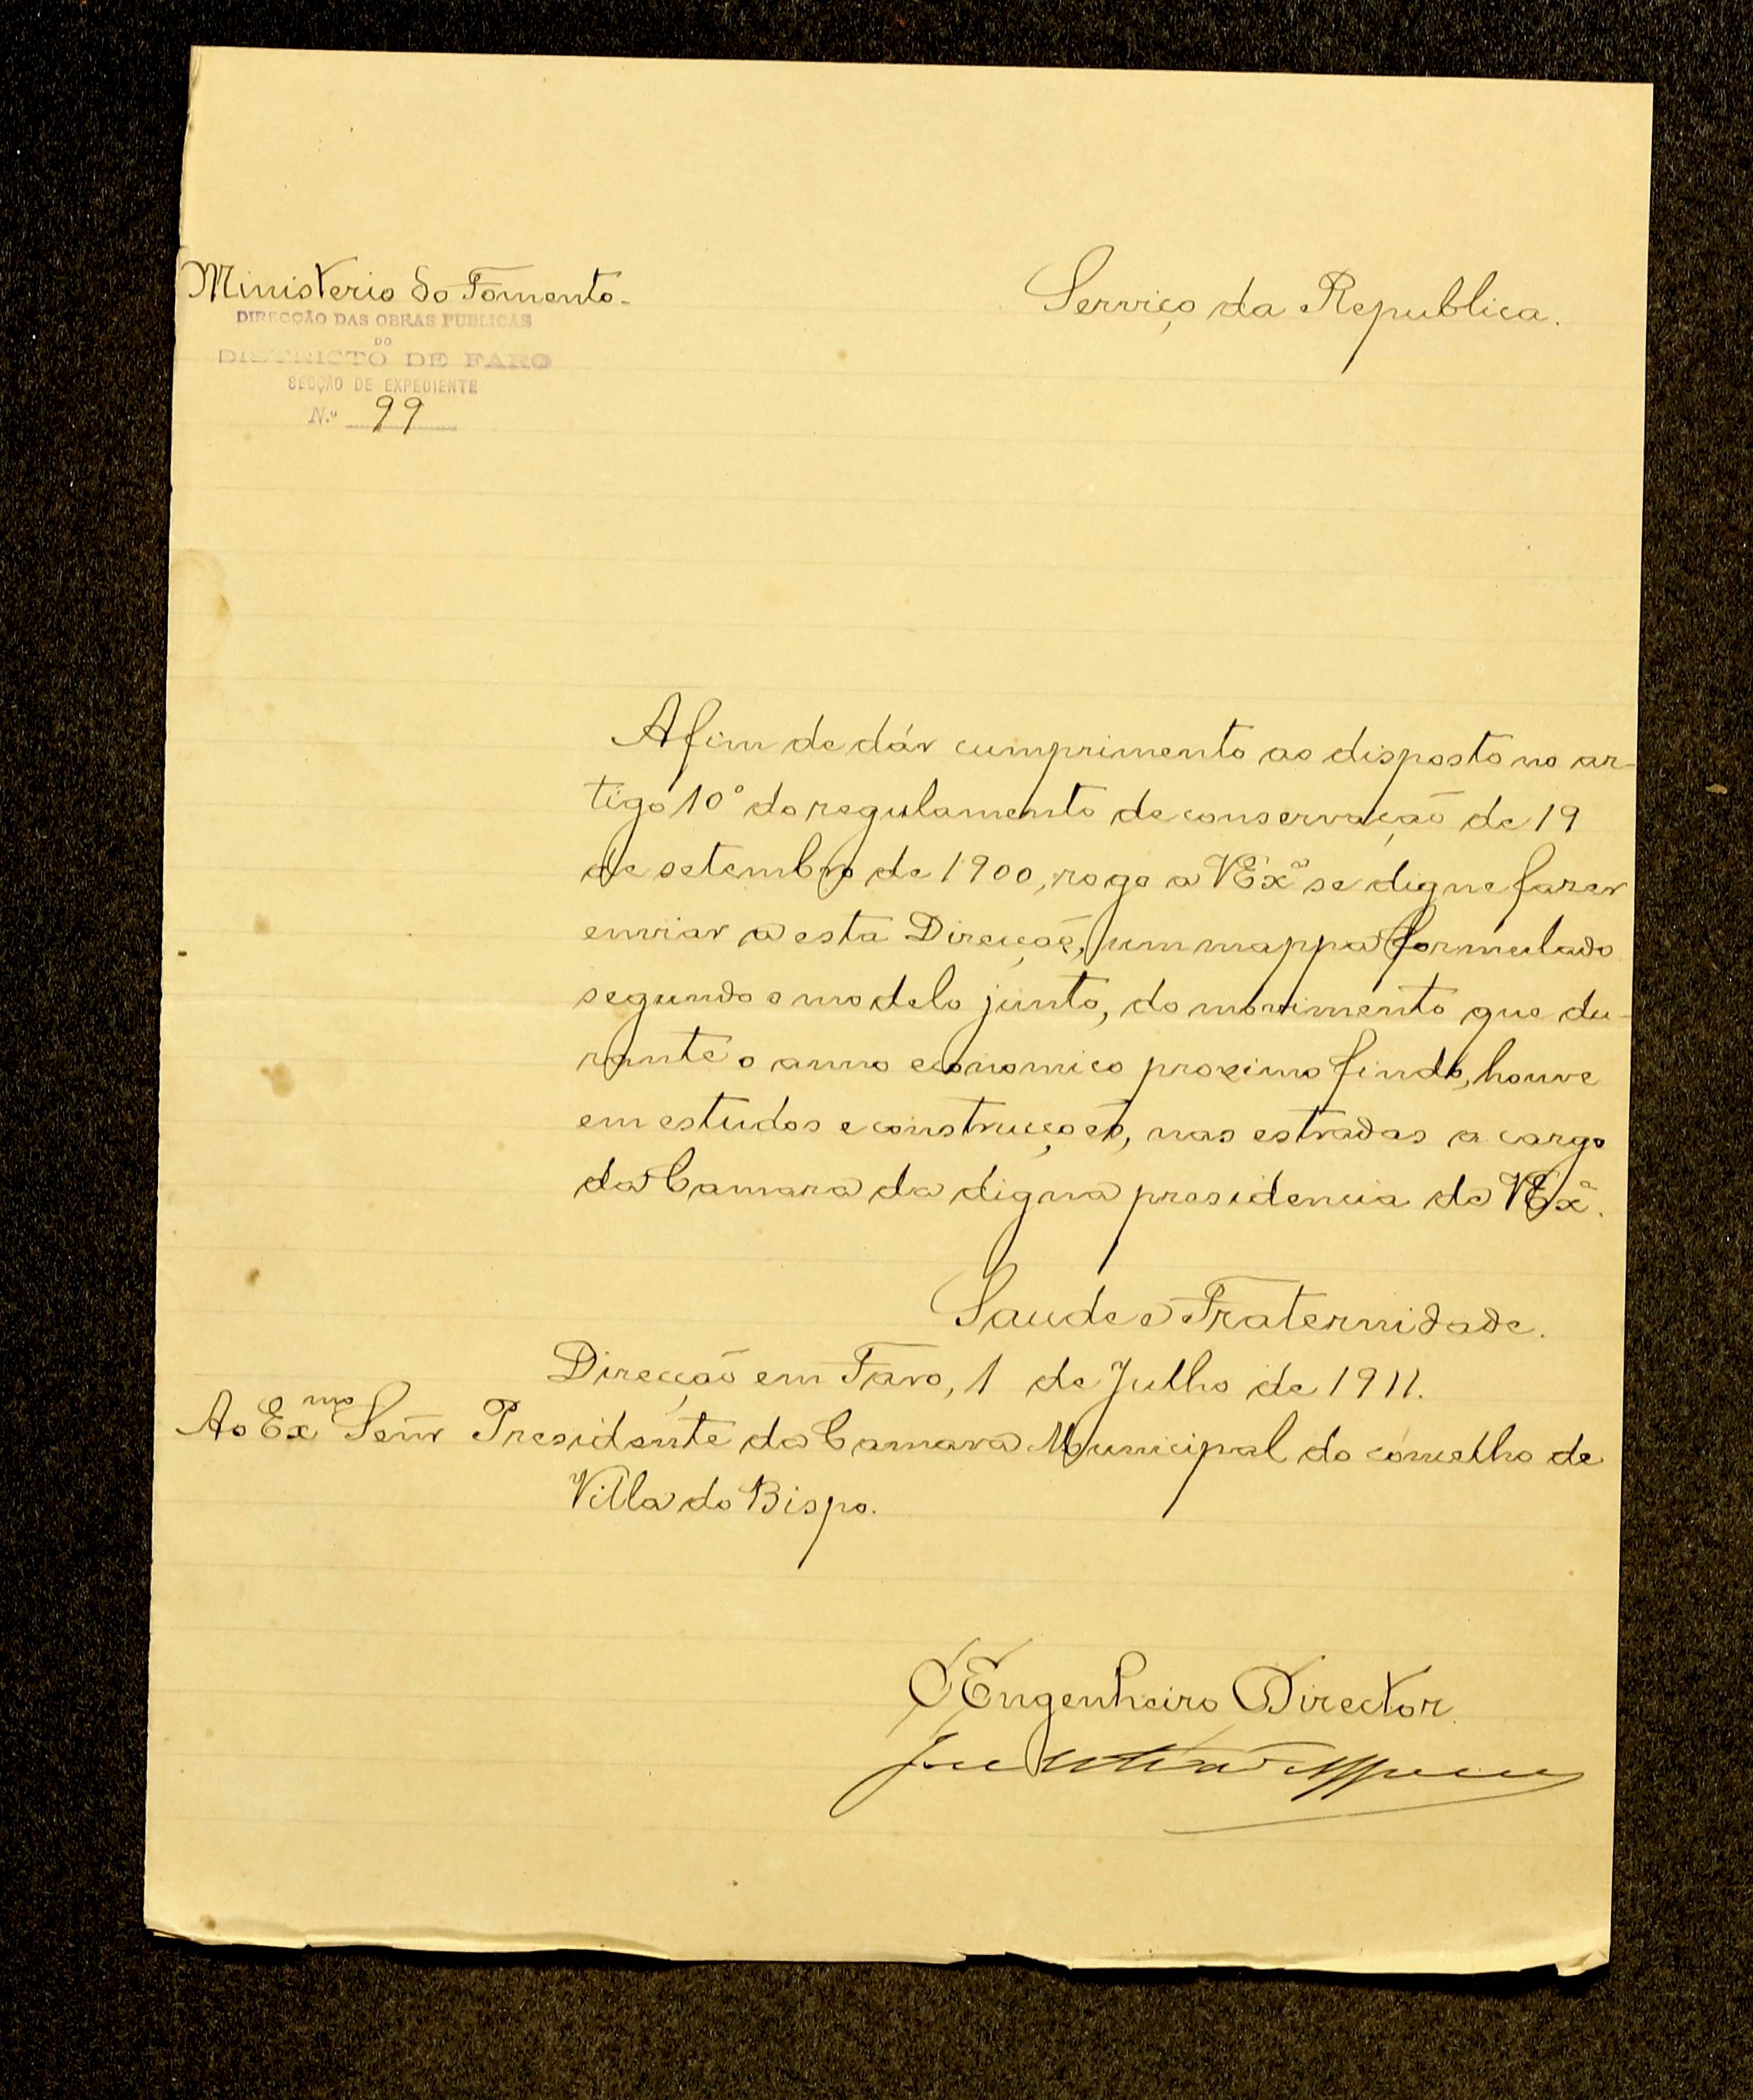 Ministerio do Fomento-
DIRECÇÃO DAS OBRAS PUBLICAS
DO
DISTRICTO DE FARO
SECÇÃO DE EXPEDIENTE
N.º 99
Serviço da Republica.
Afim de dár cumprimento ao disposto no ar-
tigo 10º do regulamento de conservação de 19
de setembro de 1900, rogo a VExª se digne fazer
enviar a esta Direcção, um mappa formulado
segundo o modelo junto, do movimento que du-
rante o anno economico proximo findo, houve
em estudos e construcções, nas estradas a cargo
da Camara da digna presidencia de VExª.
Saude e Fraternidade.
Direcção em Faro, 1 de Julho de 1911.
Ao Exmo Senr Presidente da Camara Municipal do concelho de
Villa do Bispo.
O Engenheiro Director